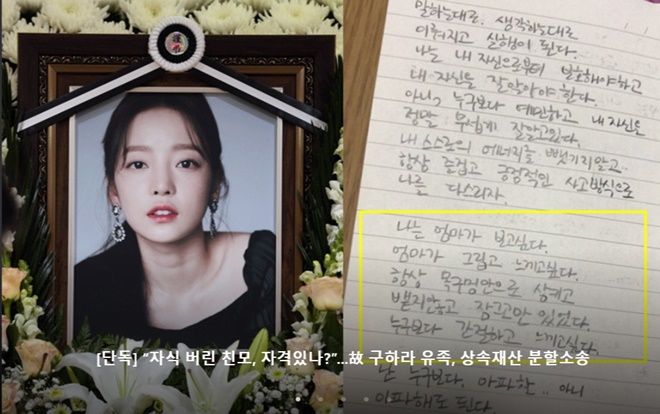 말하는대로. 생각하는대로
이뤄지고 실행이 된다.
나는 내 자신으로부터
내 자신을 잘 알아야 한다.
아니? 누구보다 예민하고 내 자신을
정말 무섭게 잘알고있다.
내 스스로의 에너지를 뺏기지말고
항상 즐겁고 긍정적인 사고방식으로
나를 다스리자.
나는 엄마가 보고싶다.
엄마가 그립고 느끼고싶다.
항상 목구멍안으로 삼키고
뱉지않고 잠그고만 있었다.
누구보다 간절하고 느끼고싶다.
난 누구보다. 아파한.. 아니
아파해도 된다.
[단독] “자식 버린 친모, 자격있나?”...故 구하라 유족, 상속재산 분할소송